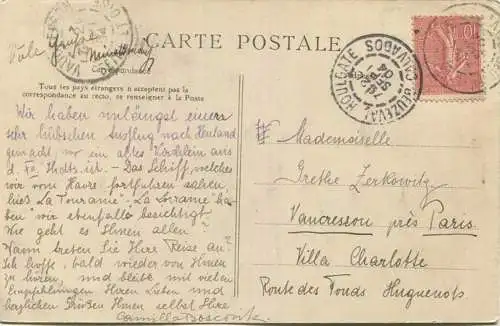 CARTE POSTALE
Correspondance
Tous les pays étrangers n'acceptent pas la
correspondance au recto, se renseigner à la Poste
BEUZEVAL HOULGATE CALVADOS
10
Wir haben unlängst einen
sehr hübschen Ausflug nach
gemacht, wo ein altes Kirchlein aus
d. XII. Jhdts. ist. - Das Schiff, welches
wir von Havre fortfahren sahen,
hies La Touraine. - La Lorraine ha-
ben wir ebenfalls besichtigt.
Wie geht es Ihnen allen?
Wann treten Sie Ihre Reise an?
Ich hoffe, bald wieder von Ihnen
zu hören, und bleibe mit vielen
Empfehlungen Ihren Lieben und
herzlichen Grüßen Ihnen selbst Ihre
Camilla Boscovitz
Mademoiselle
Grethe Zerkowitz
Vaucresson près Paris
Villa Charlotte
Route des Fonds Huguenots